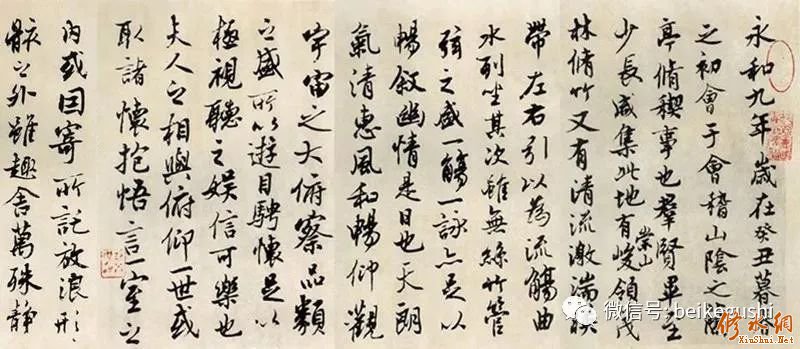 永和九年歲在癸丑暮春
之初會于會稽山陰之蘭
亭脩稧事也羣賢畢至
少長咸集此地有崇山峻領茂
林脩竹又有清流激湍映
帶左右引以為流觴曲
水列坐其次雖無絲竹管
弦之盛一觴一詠亦足以
暢敘幽情是日也天朗
氣清惠風和暢仰觀
宇宙之大俯察品類
之盛所以遊目騁懷足以
極視聽之娛信可樂也
夫人之相與俯仰一世或
取諸懷抱悟言一室之
內或因寄所託放浪形
骸之外雖趣舍萬殊靜
微信号: beikegushi
修水网
XiuShui.Net